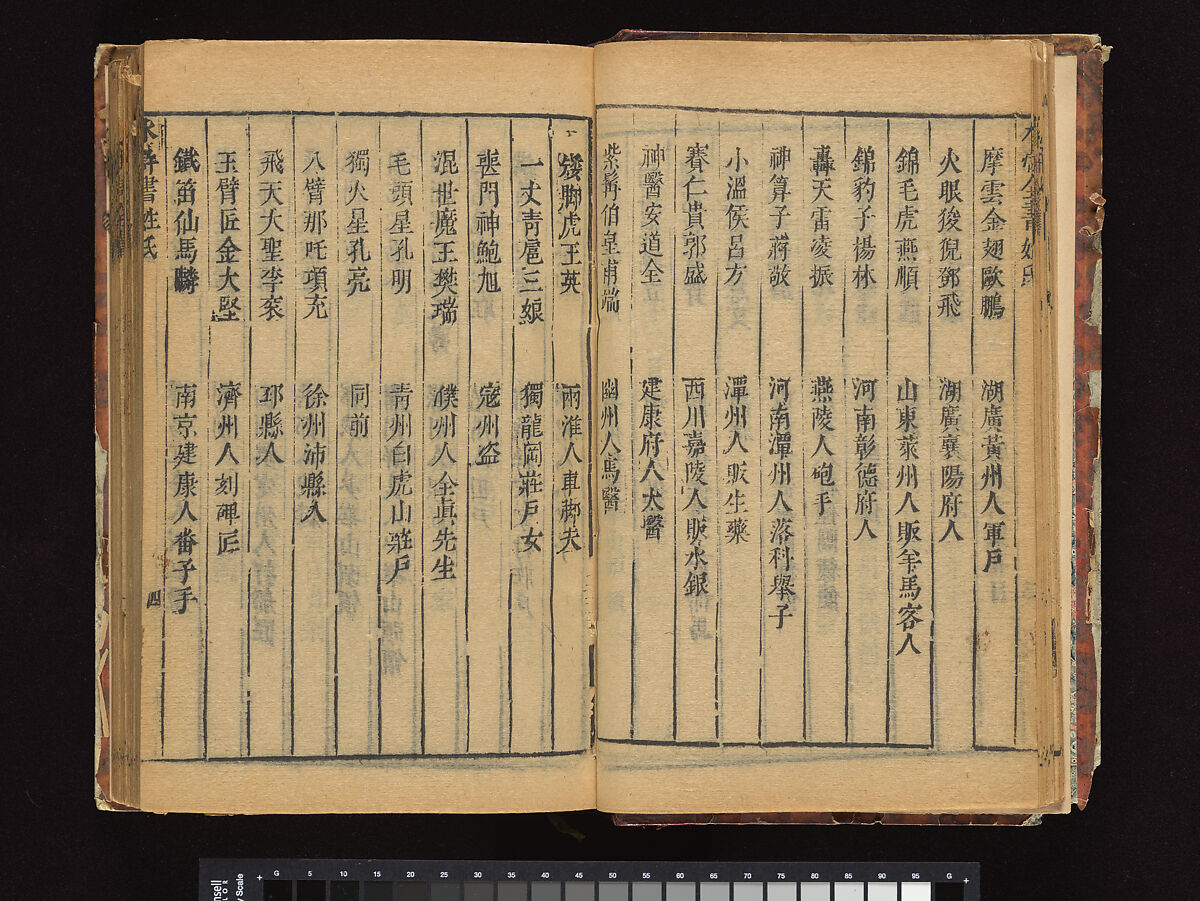 摩雲金翅歐鵬 湖廣黃州人軍戶
火眼狻猊鄧飛 湖廣襄陽府人
錦毛虎燕順 山東萊州人販羊馬客人
錦豹子楊林 河南彰德府人
轟天雷凌振 燕陵人砲手
神算子蔣敬 河南潭州人落科舉子
小溫侯呂方 潭州人販生藥
賽仁貴郭盛 西川嘉陵人販水銀
神醫安道全 建康府人太醫
紫髯伯皇甫端 幽州人馬醫
矮脚虎王英 兩淮人車脚夫
一丈青扈三娘 獨龍岡莊戶女
喪門神鮑旭 寇州盗
混世魔王樊瑞 濮州人全真先生
毛頭星孔明 青州白虎山莊戶
獨火星孔亮 同前
八臂那吒項充 徐州沛縣人
飛天大聖李袞 邳縣人
玉臂匠金大堅 濟州人刻碑匠
鐵笛仙馬麟 南京建康人番子手
水滸書姓氏
四
0 5 10 15 20 25 30 35 40 45 50 55 60 65 70 75 80 85 90 95